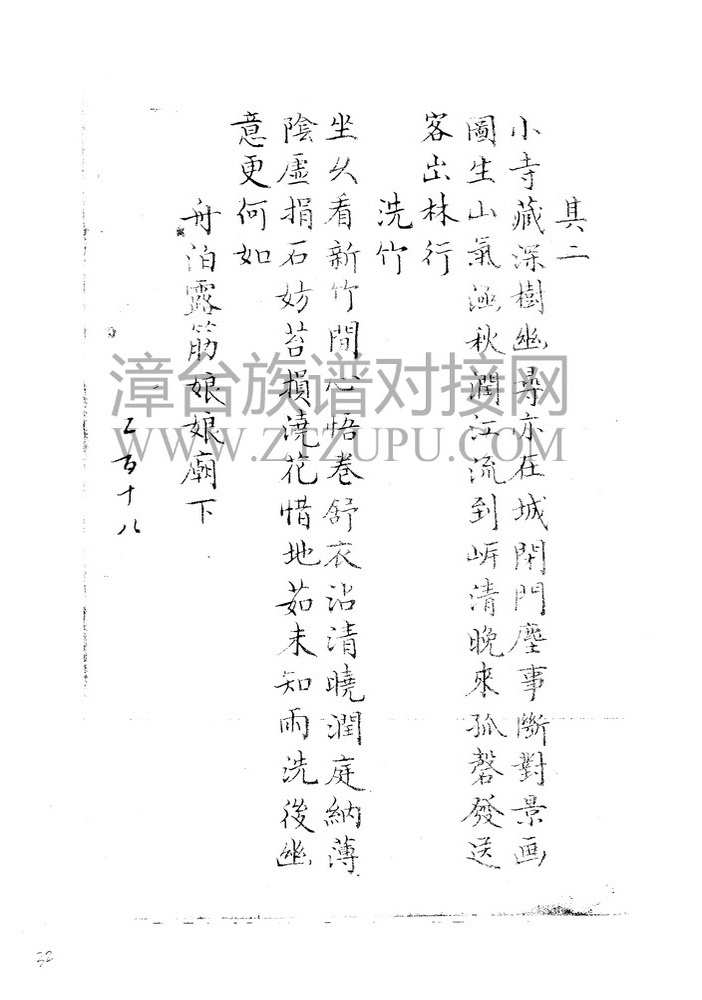 其二
小寺藏深樹幽尋亦在城閉門塵事斷對景画
圖生山氣逼秋潤江流到岍清晚來孤磬發送
客出林行
洗竹
坐久看新竹閒心悟卷舒衣沾清曉潤庭納薄
陰虛捐石妨苔損澆花惜地茹未知雨洗後幽
意更何如
舟泊露筋娘娘廟下
二百十八
漳台族谱对接网
WWW.ZTZUPU.COM
32